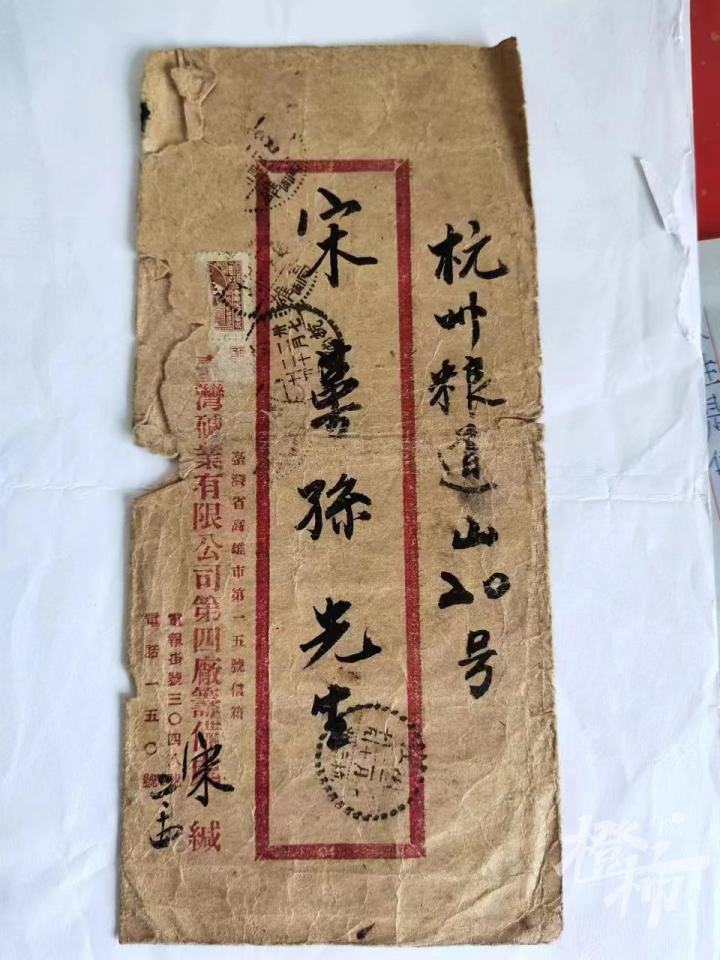 杭州粮道山20号
宋 孫先生
臺灣省高雄市第一五號信箱
臺灣碱業有限公司第四廠籌備處 宋 緘
電報掛號三〇四八號
電話一五〇號
橙柿